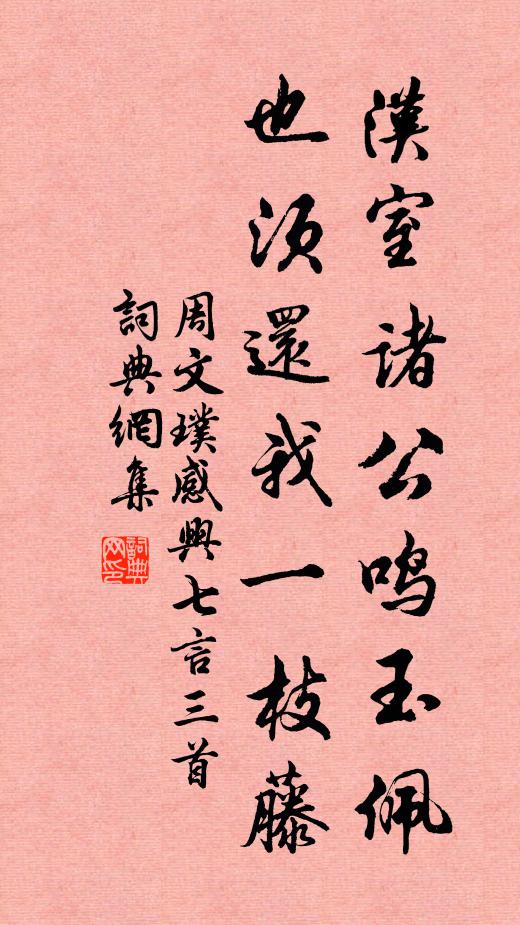 漢室諸公鳴玉佩
也須還我一枝藤
周文璞感興七言三首
詞典網集
詞典網印